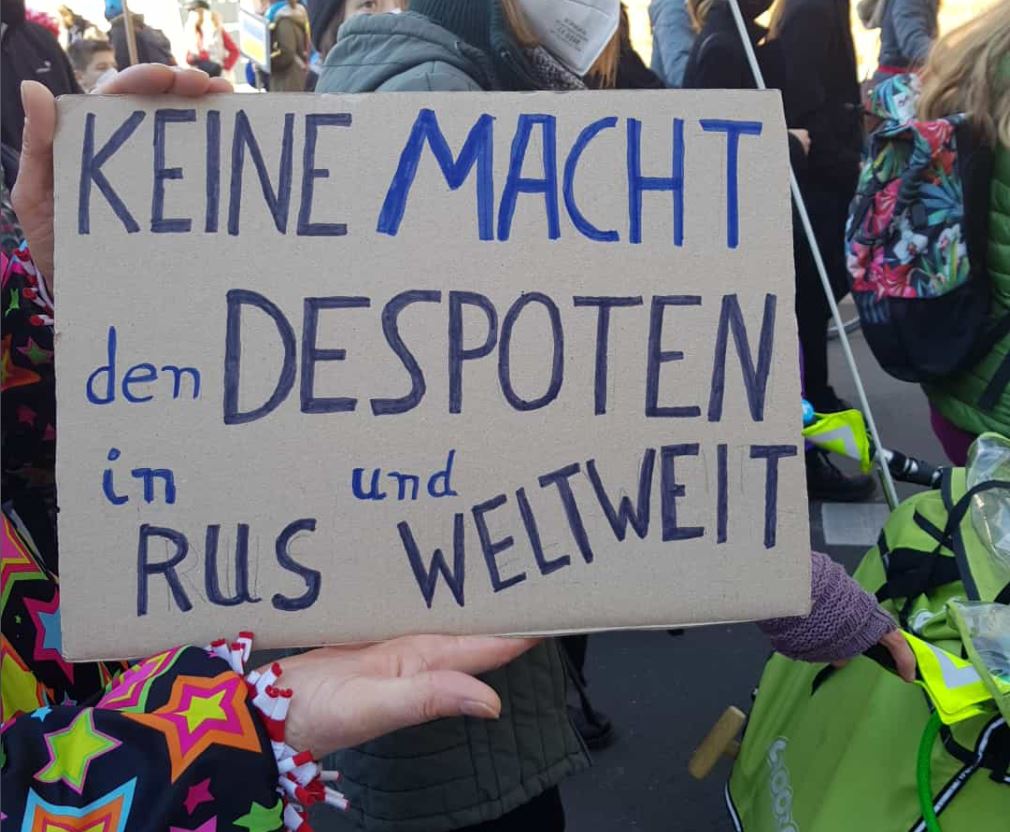 KEINE MACHT
den DESPOTEN
in und
RUS WELTWEIT